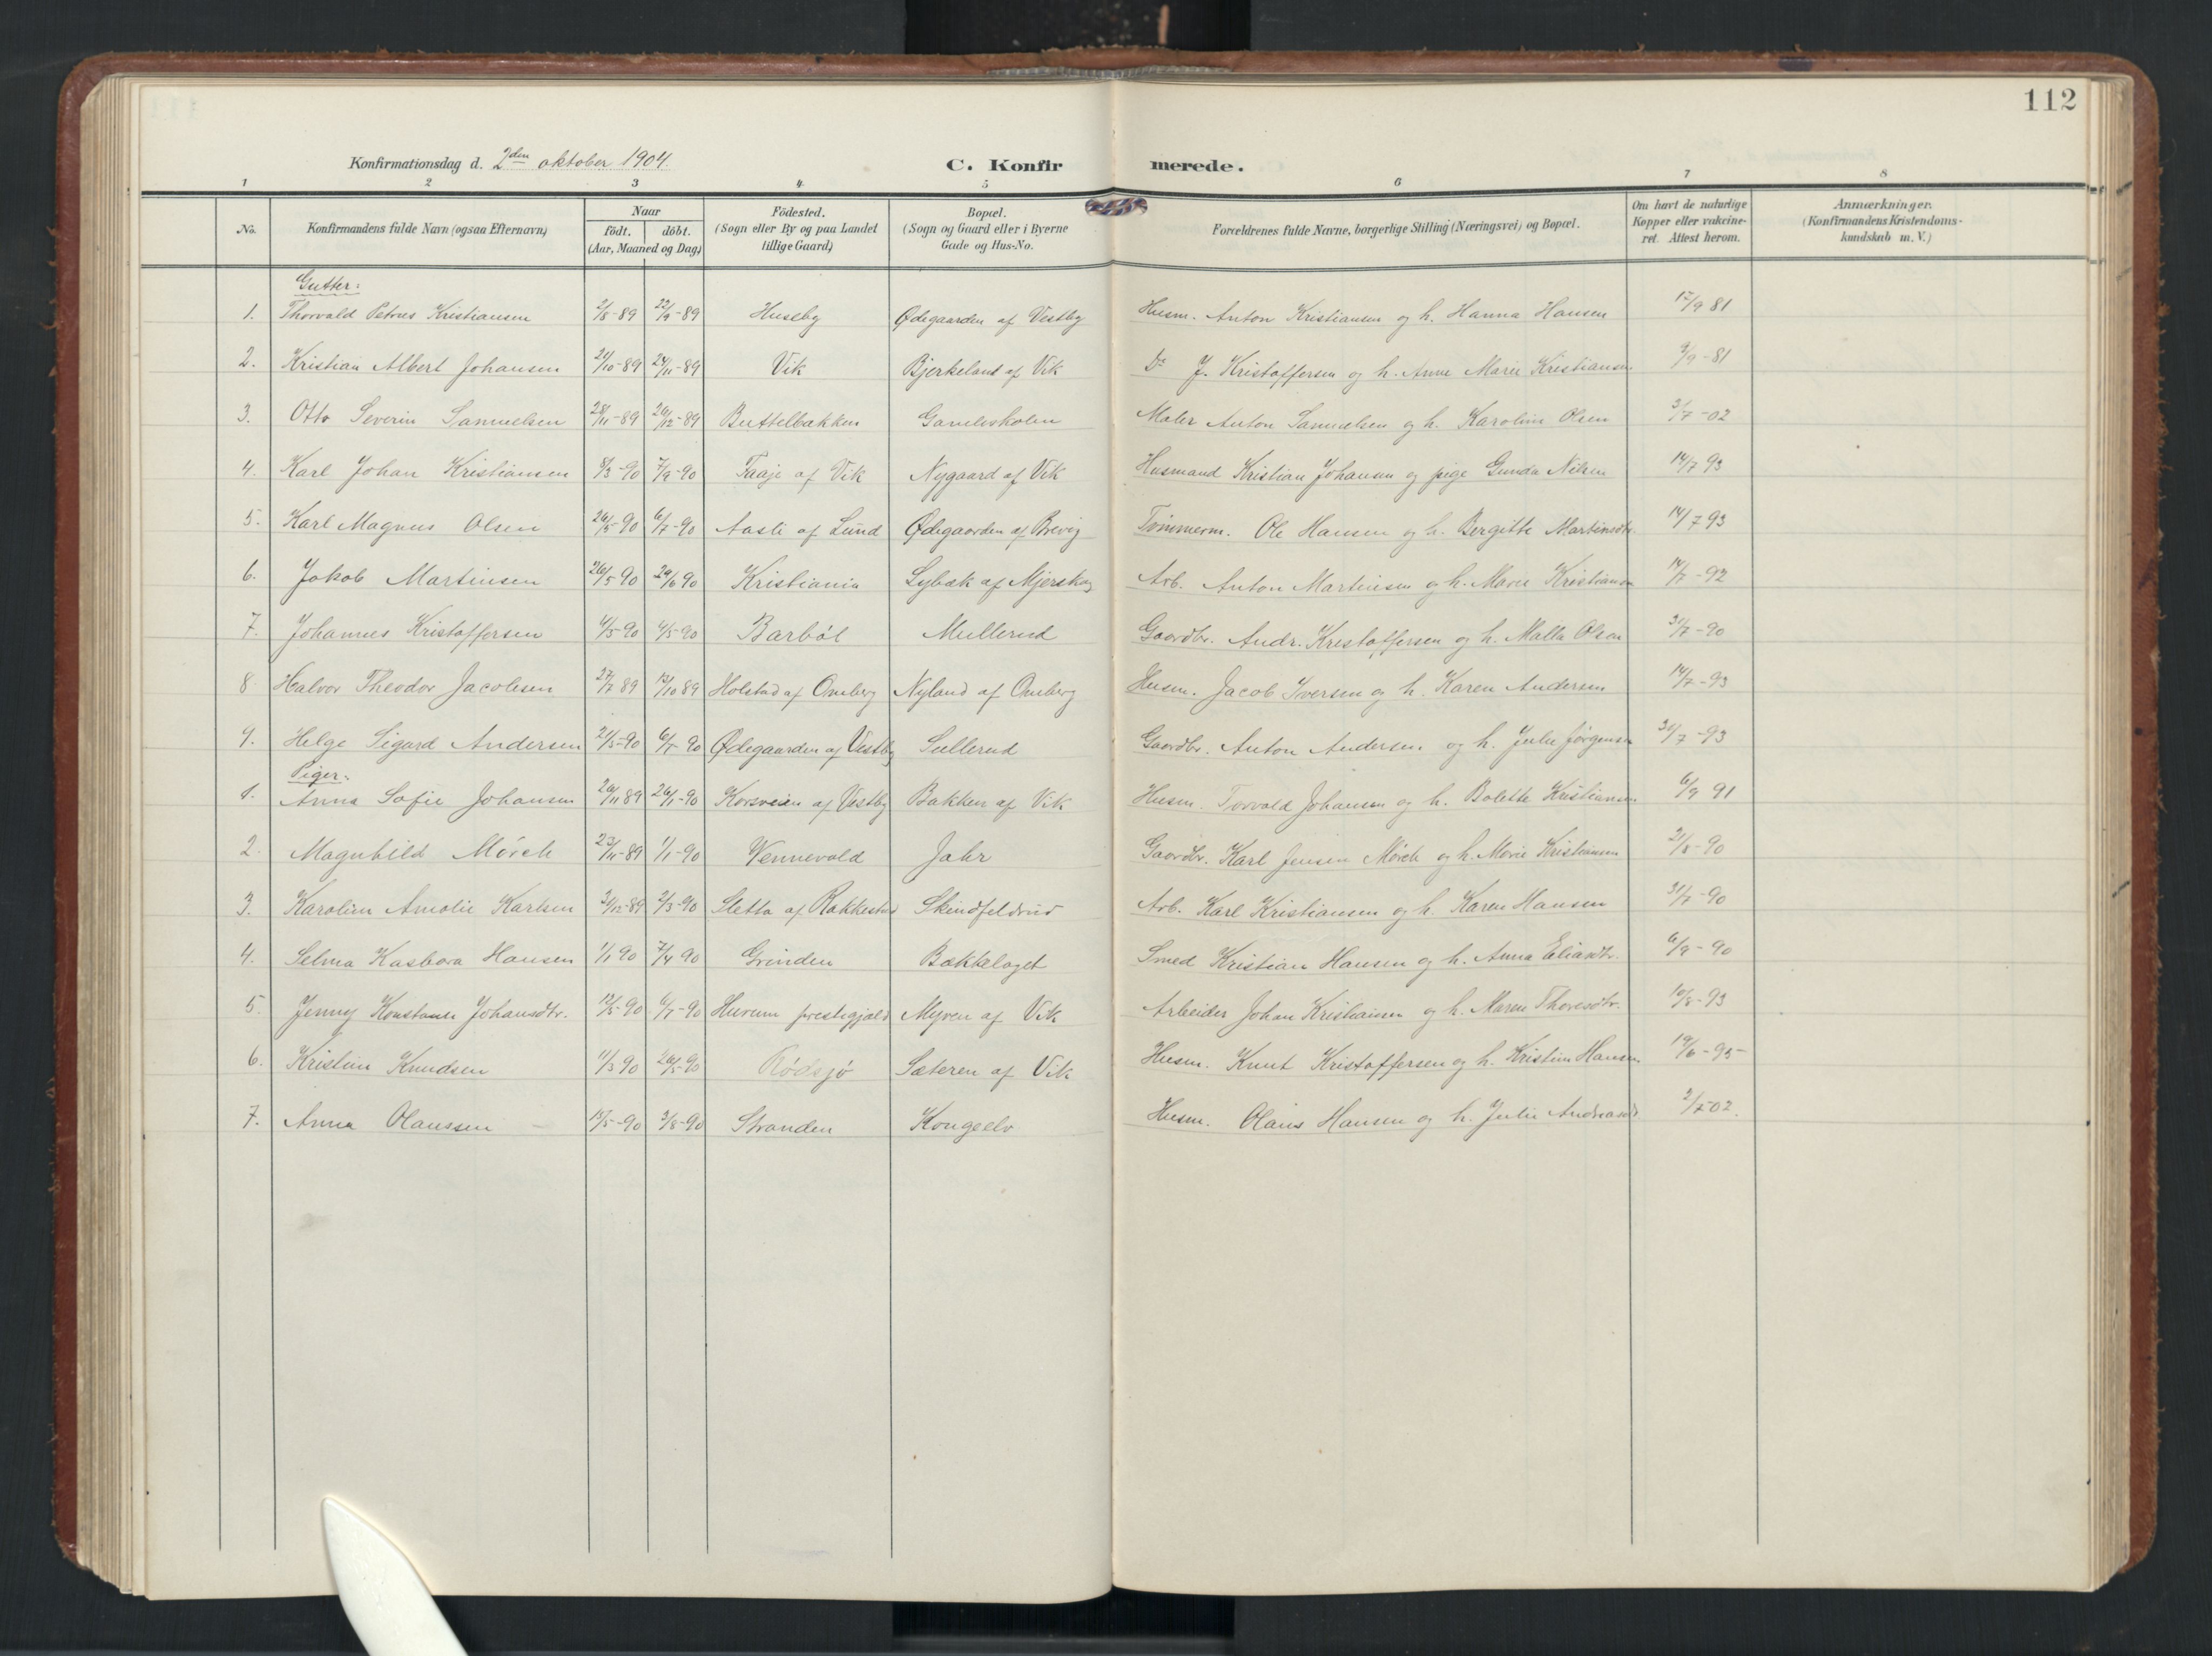 112
Konfirmationsdag d. 2den oktober 1904.
C. Konfirmerede.
1 2 3 4 5 6 7 8
No. Konfirmandens fulde Navn (ogsaa Efternavn) Naar födt. döbt. (Aar, Maaned og Dag) Födested. (Sogn eller By og paa Landet tillige Gaard) Bopæl. (Sogn og Gaard eller i Byerne Gade og Hus-No. Forældrenes fulde Navne, borgerlige Stilling (Næringsvei) og Bopæl. Om havt de naturlige Kopper eller vakcineret. Attest herom. Anmærkninger. (Konfirmandens Kristendomskundskab m. V.)
Gutter:
1. Thorvald Petrus Kristiansen 2/8-89 22/9-89 Huseby Ødegaarden af Vestby Husm. Anton Kristiansen og h. Hanna Hansen 17/9 81
2. Kristian Albert Johansen 21/10-89 24/11-89 Vik Bjerkeland af Vik Do J. Kristoffersen og h. Anne Marie Kristiansen 9/9-81
3. Otto Severin Samuelsen 28/11-89 26/12-89 Buttelbakken Gaveleskolen Maler Anton Samuelsen og h. Karoline Olsen 3/7-02
4. Karl Johan Kristiansen 8/3-90 7/9-90 Taaje af Vik Nygaard af Vik Husmand Kristian Johansen og pige Gunda Nilsen 14/7 93
5. Karl Magnus Olsen 26/5-90 6/7-90 Aasli af Lund Ødegaarden af Brevig Tömmerm. Ole Hansen og h. Bergitte Martinsdtr. 14/7 93
6. Jakob Martinsen 26/5 90 29/6 90 Kristiania Lybæk af Mjerskog Arb. Anton Martinsen og h. Marie Kristiansen 14/7-92
7. Johannes Kristoffersen 4/5-90 Barböl Mullerud Gaardbr. Andr. Kristoffersen og h. Malla Olsen 31/7-90
8 Halvor Theodor Jacobsen 27/7 89 13/10 89 Holstad af Omberg Nyland af Omberg Husm. Jacob Iversen og h. Karen Andersen 14/7-93
9. Helge Sigard Andersen 21/3-90 Ødegaarden af Vestby Sullerud Gaardbr. Anton Andersen og h. Julie Jörgensen 31/7-93
Piger:
1. Anna Sofie Johansen 26/11 89 26/1-90 Korsveien af Vestby Bakken af Vik Husm. Torvald Johansen og h. Bolette Kristiansen 6/9 91
2. Magnhild Mörch 23/11-89 1/1-90 Vennevold Jahr Gaardbr. Karl Jensen Mörch og h. Marie Kristiansen 21/8-90
3. Karoline Amalie Karlsen 20/12-89 2/3-90 Sletta af Rakkestad Skindfeldrud Arb. Karl Kristiansen og h. Karen Hansen 31/7-90
4. Selma Kasbara Hansen 1/1 90 7/4 90 Grinden Bækkelaget Smed Kristian Hansen og h. Anna Eliasdtr. 6/9-90
5. Jenny Konstanse Johansdtr. 12/5-90 6/7-90 Hurum prestegjæld Myren af Vik Arbeider Johan Kristiansen og h. Maren Thoresdtr. 10/8-93
6. Kristine Knudsen 11/3 90 26/5-90 Rödsjö Sæteren af Vik Husm. Knut Kristoffersen og h. Kristine Hansen 19/6-95
7. Anna Olaussen 15/5-90 3/8-90 Stranden Kongeelv Husm. Olaus Hansen og h. Julie Andreasdr. 2/7-02.